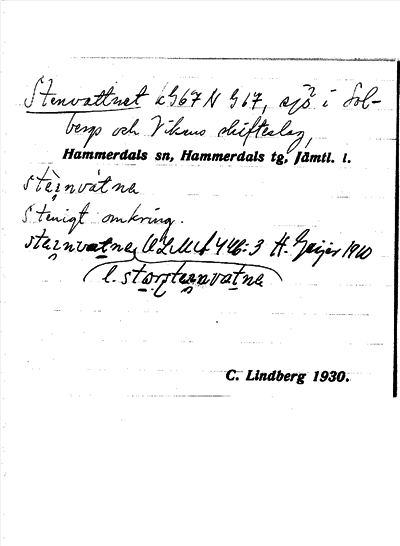 Stenvattnet LG67N G17, sjö i Sol-
bergs och Vikens skifteslag,
Hammerdals sn, Hammerdals tg, Jämtl. l.
stènvátna
Stenigt omkring.
stænvatna, ULMA 446:3 H. Geijer 1910
l. storstænvatna
C. Lindberg 1930.